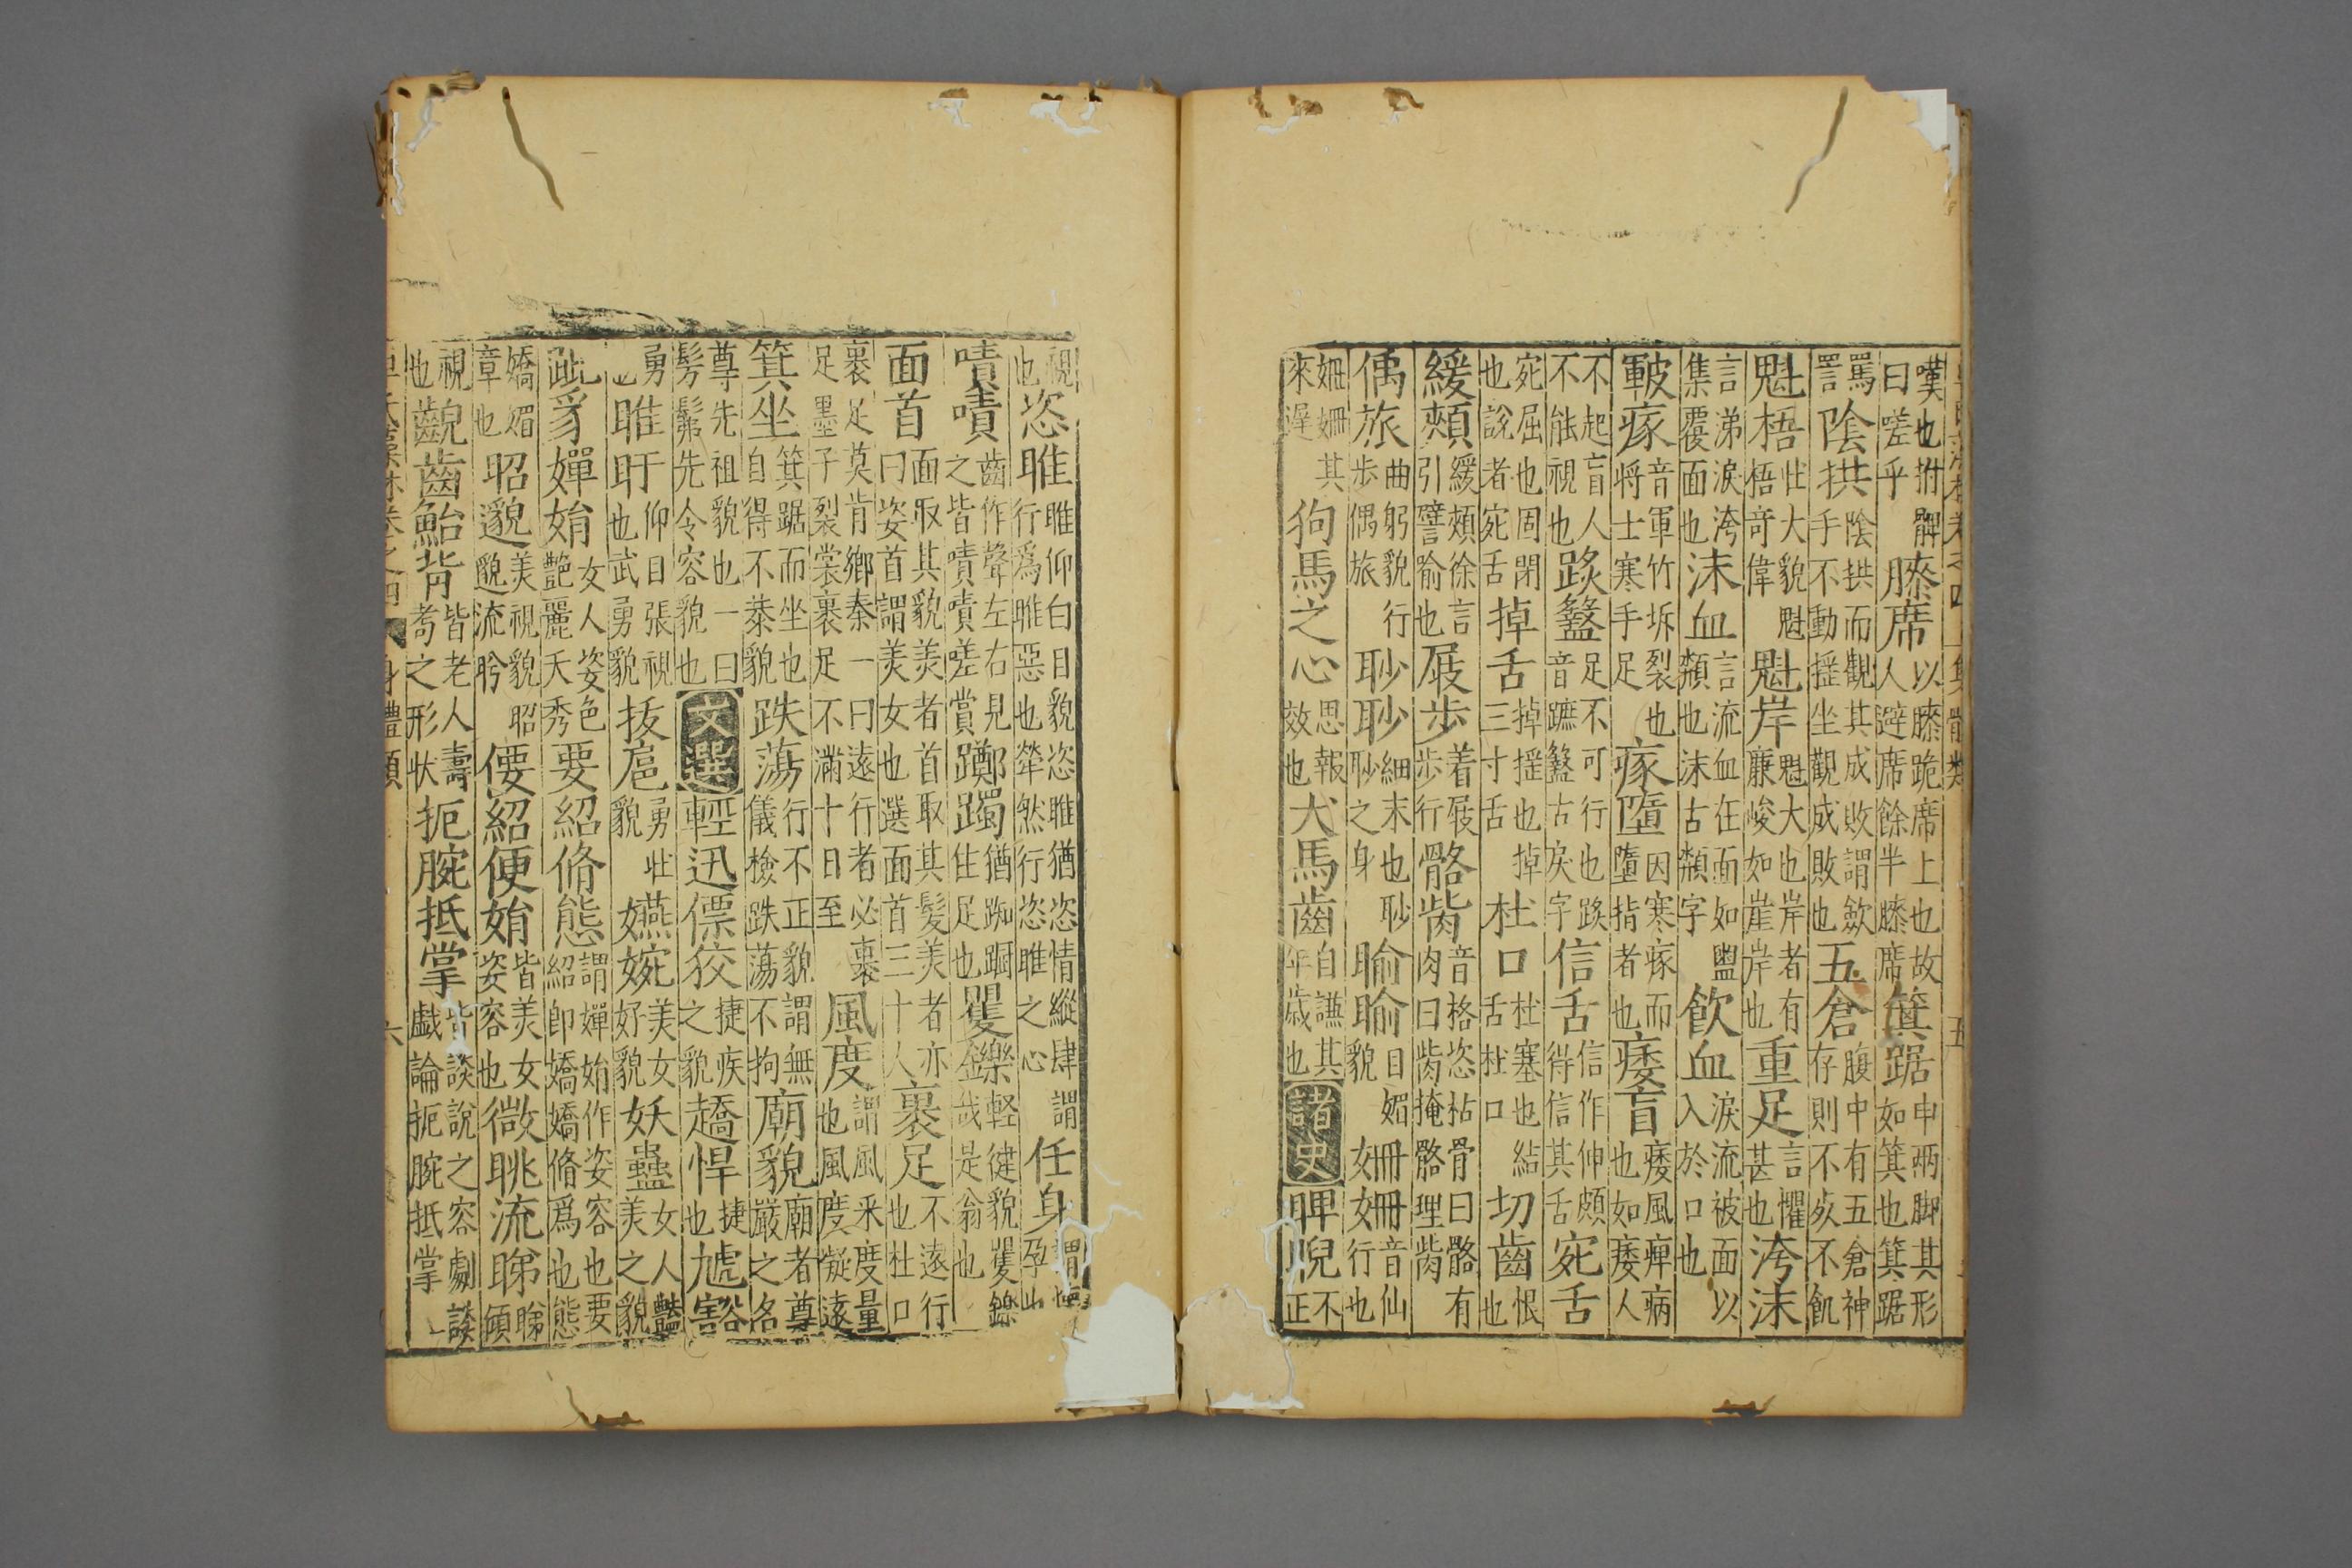 嘆也拊髀曰嗟乎膝席以膝跪席上也故人避席餘半膝席箕踞申兩脚其形如箕也箕踞
罵詈陰拱陰拱而觀其成敗謂歛手不動揺坐觀成敗也五倉腹中有五倉神存則不㱙不飢
魁梧壮大貌魁梧竒偉魁岸魁大也岸者有廉峻如崖岸也重足言懼甚也洿沬
言涕淚洿集覆面也沬血言流血在面如盥頮也沬古頮字飲血淚流被面以入於口也
皸瘃音軍竹坼裂也将士寒手足瘃墮因寒瘃而墮指者也痿盲痿風痺病也如痿人
不起盲人不能視也跋盭足不可行也跋音蹠盭古戾字信舌信作伸頗得信其舌宛舌
宛屈也固閉也說者宛舌掉舌掉揺也掉三寸舌杜口杜塞也結舌杜口切齒恨也
緩頰緩頰徐言引譬喻也屐步着屐步行骼胔音格恣枯骨曰骼有肉曰胔掩骼理胔
偊旅曲躬貌行步偊旅耾耾細末也耾耾之身睮睮目媚貌姗姗音仙行也
姗姗其來遲狗馬之心思報效也犬馬齒自謙其年歳也諸史睥睨不正
視也恣睢睢仰白目貌恣睢猶恣行爲睢惡也犖然行恣睢之心情縱肆謂任身謂懷孕也
嘖嘖齒作作聲左右見之皆嘖嘖嗟賞躑躅猶踟蹰住足也矍鑠軽健貌矍鑠哉是翁也
面首面取其貌美者首取其髪美者亦曰姿首謂美女也選面首三十人裹足不遠行也杜口
裹足莫肯鄉秦一曰遠行者必裹足墨子裂裳裹足不滿十日至風度謂風釆度量也風度凝遠
箕坐箕踞而坐也自得不恭貌跌蕩行不正貌謂無儀檢跌蕩不拘廟貌廟者尊嚴之名
尊先祖貌也一曰髣髴先令容貌也文選輕迅僄狡捷疾之貌趫悍捷也虓豁
勇也睢盱仰目張視也武勇貌拔扈勇壮貌嬿婉美女好貌妖蠱女人豔美之貌
豸嬋娟女人姿色艶麗夭秀要紹脩態謂嬋娟作姿容也要紹卽嬌嬌脩爲也態
嬌媚章也昭邈美視貌昭邈流盻偠紹便娟皆美女姿容也微眺流睇睇傾
視也齯齒鮐背皆老人壽耇之形状扼腕抵掌皆談說之容劇談戯論扼腕抵掌